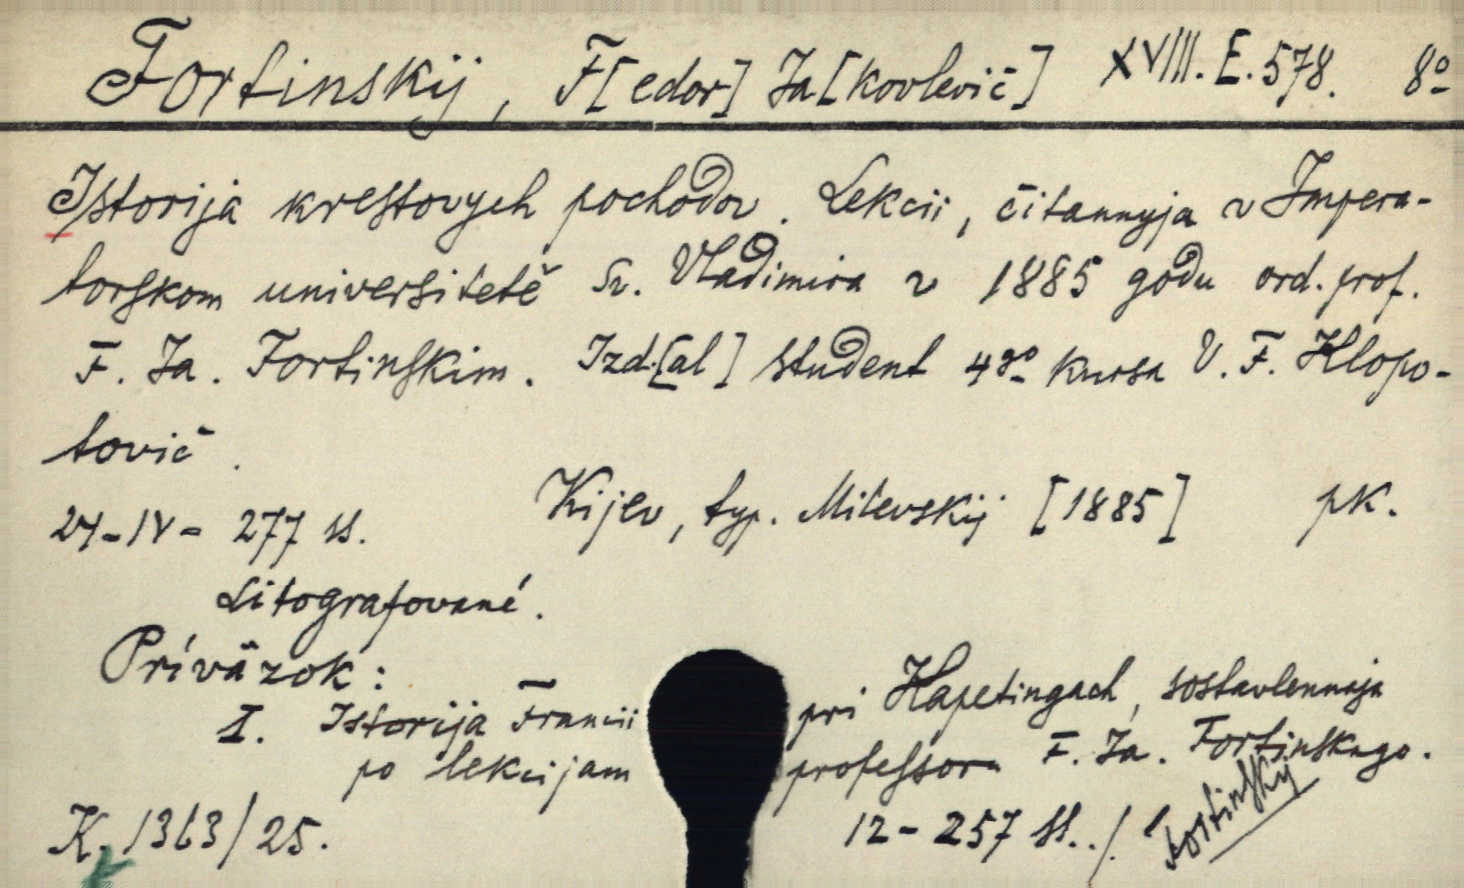 Fortinskij, F[edor] Ja[kovlevič] XVIII. E. 578. 8º
Istorija krestovych pochodov. Lekcii, čitannyja v Impera-
torskom universitetě Sv. Vladimira v 1885 godu ord. prof.
F. Ja. Fortinskim. Izd.[al] student 4go kursa V. F. Klopo-
tovič.
24-IV-277 ss. Kijev, typ. Milevskij [1885] pk.
Litografované.
Prívӓzok:
I. Istorija Francii pri Kapetingach, sostavlennaja
po lekcijam professora F. Ja. Fortinskago.
K. 1363/25. 12-257 ss../. Fortinskij